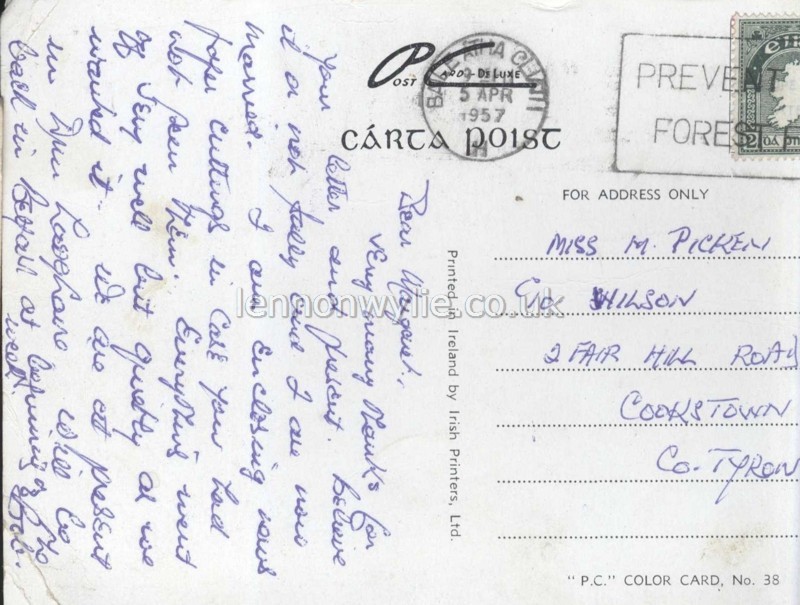 POST CARD - DE LUXE
CÁRTA POIST
BAILE ÁTHA CLIATH
5 APR
1957
PREVENT
FOREST F
éire
FOR ADDRESS ONLY
MISS M. PICKEN
C/O WILSON
2 FAIR HILL ROAD
COOKSTOWN
CO. TYRON
Printed in Ireland by Irish Printers, Ltd.
"P.C." COLOR CARD, No. 38
Dear Margaret,
Very many thanks for
your letter and present. Believe
it or not folly and I are now
married. I am enclosing news
paper cuttings in case you had
not seen them. Everything went
off very well but quietly as we
wanted it. We are at present
in Dun Laoghaire. Will be
back in Belfast at beginning of the
week.
Bob.
lennonwylie.co.uk